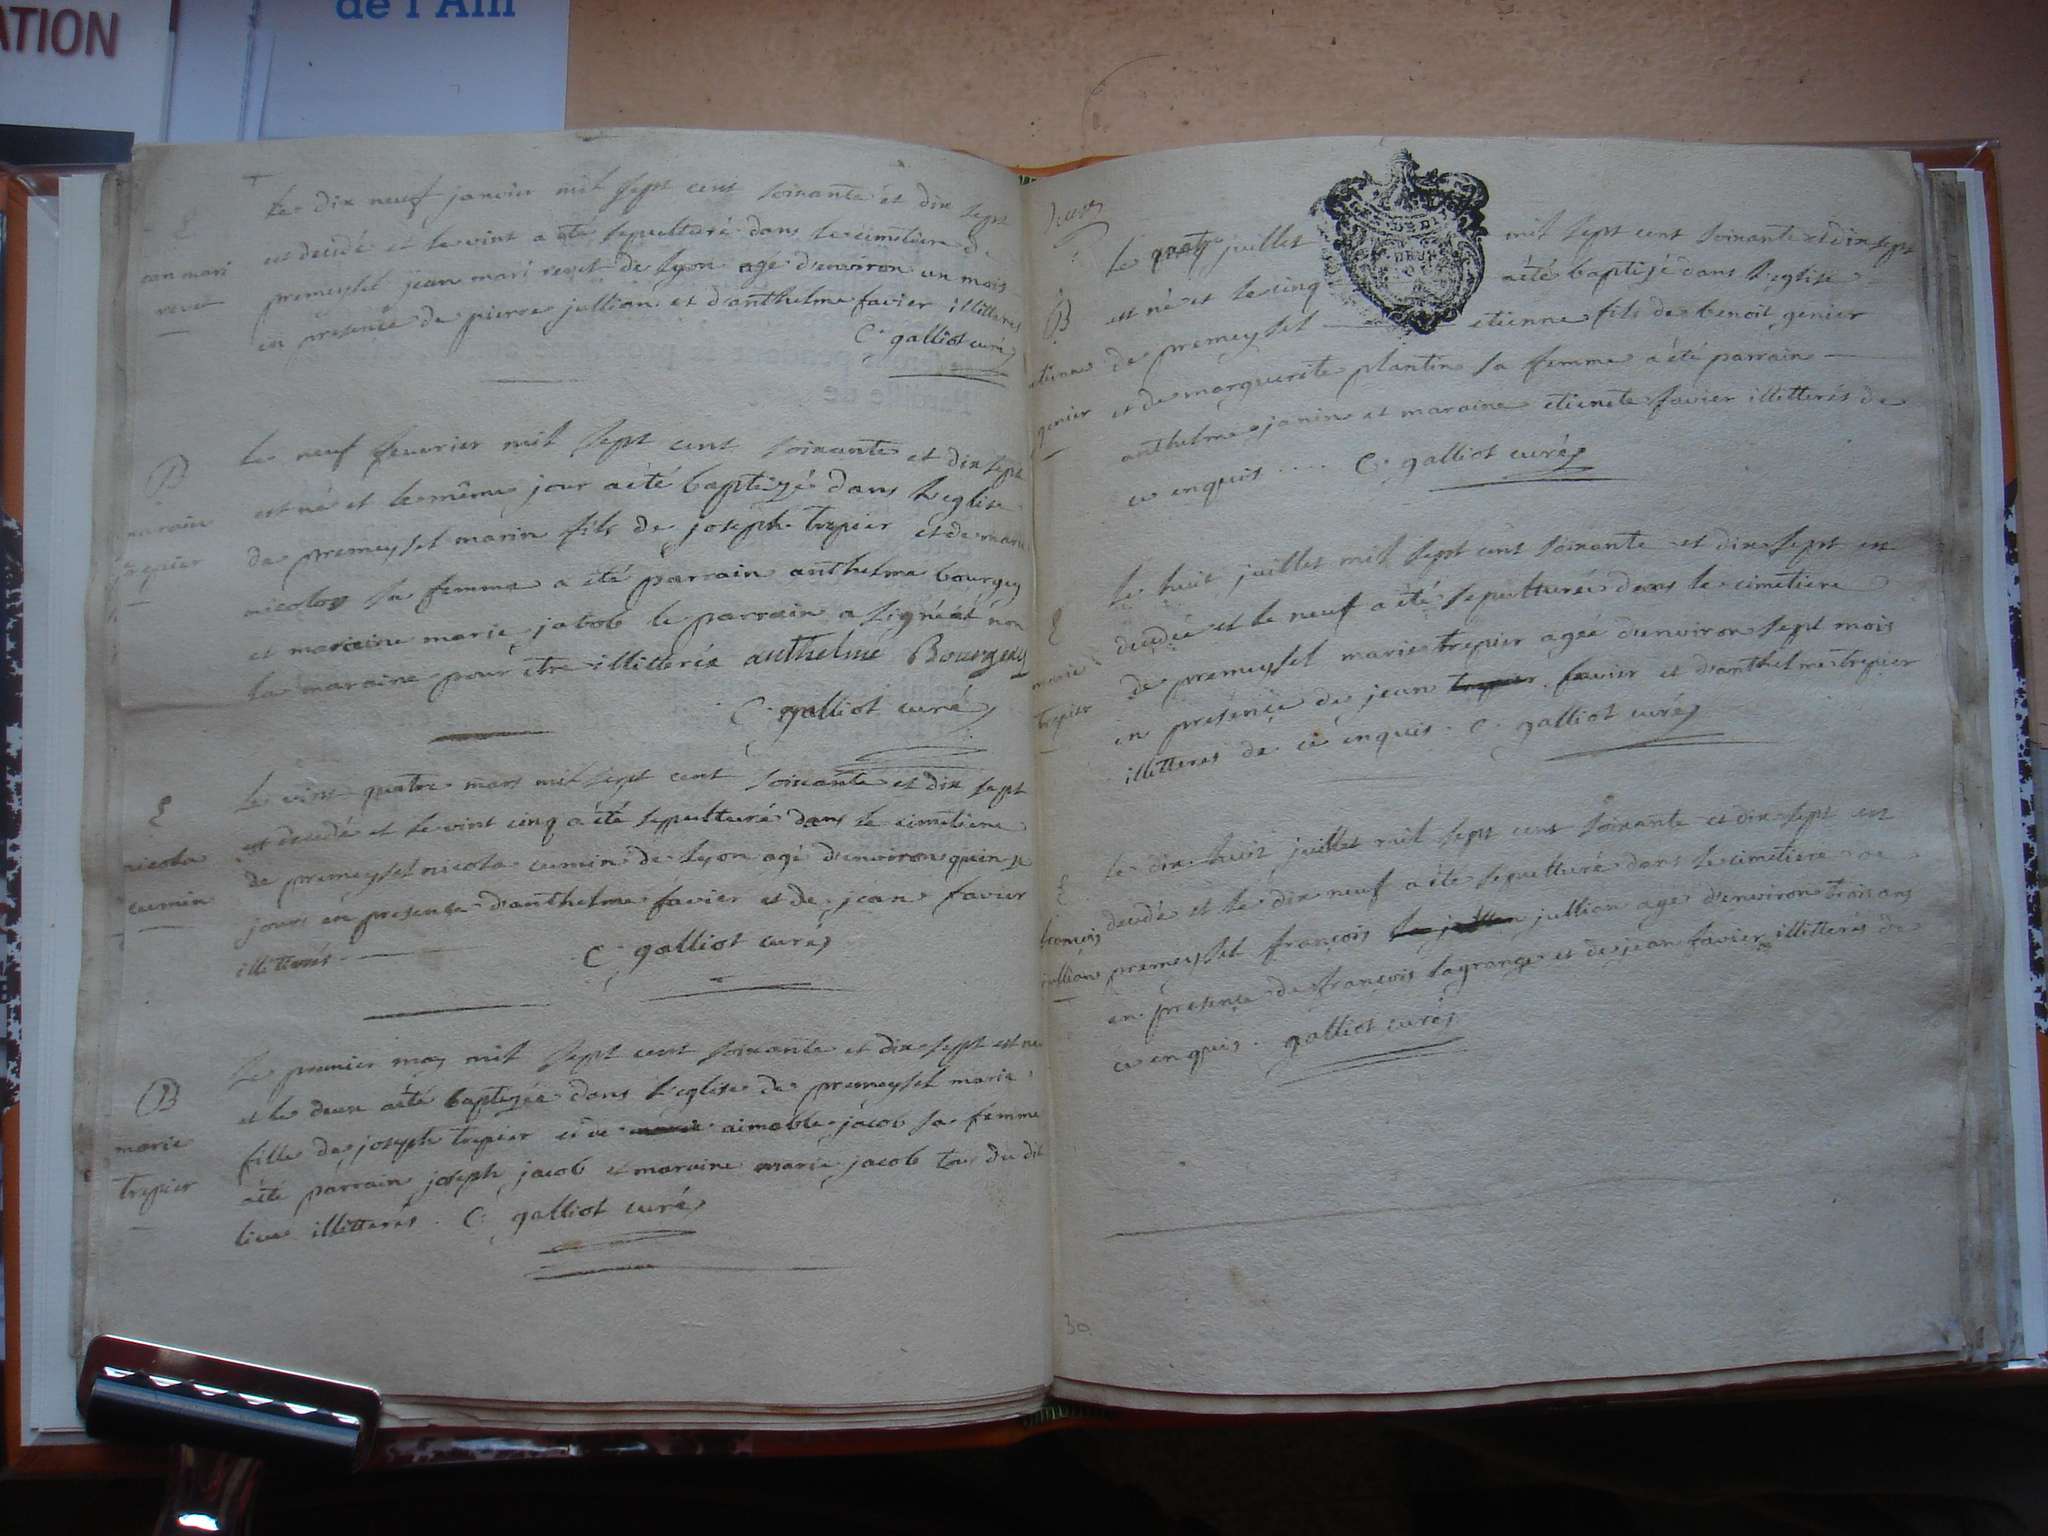 ATION
de l'Ain
Le dix neuf janvier mil sept cent soixante et dix sept
est decidé et le vint a été sepulturé dans le cimetiere de
premeysel jean mari revet de lyon agé d'environ un mois
en presence de pierre jullian et d'anthelme favier illitteres
C. galliot curé
B
marin
trepier
Le neuf feuvrier mil sept cent soixante et dix sept
est né et le même jour a été baptizé dans l'eglise
de premeysel marin fils de joseph trepier et de marie
nicoloz sa femme a été parrain anthelme bourgey
et maraine marie jacob le parrain a signé et non
la maraine pour être illitterée anthelme Bourgeay
C. galliot curé
E
nicola
cumin
Le vint quatre mars mil sept cent soixante et dix sept
est decedé et le vint cinq a été sepulturé dans le cimetiere
de premeysel nicola cumin de lyon agé d'environ quinze
jours en presence d'anthelme favier et de jean favier
illitterés
C. galliot curé
B
marie
trepier
Le premier may mil sept cent soixante et dix sept est née
et le deux a été baptizée dans l'eglise de premeysel marie
fille de joseph trepier et de aimable jacob sa femme
a été parrain joseph jacob et maraine marie jacob tous du dit
lieu illitterés . C. galliot curé
B
etienne
genier
Le quatre juillet mil sept cent soixante et dix sept
est né et le cinq a été baptizé dans l'eglise
de premeysel etienne fils de benoit genier
et de marguerite plantin sa femme a été parrain
anthelme janin et maraine etienete favier illitterés de
ce enquis .... C. galliot curé
E
marie
trepier
Le huit juillet mil sept cent soixante et dix sept est
decedée et le neuf a été sepulturée dans le cimetiere
de premeysel marie trepier agée d'environ sept mois
en presence de jean trepier favier et d'anthelme trepier
illitteres de ce enquis . C. galliot curé
E
francois
jullian
Le dix huit juillet mil sept cent soixante et dix sept est
decedé et le dix neuf a été sepulturé dans le cimetiere de
premeysel francois jullian agé d'environ trois ans
en presence de francois lagrange et de jean favier illitterés de
ce enquis . galliot curé
30